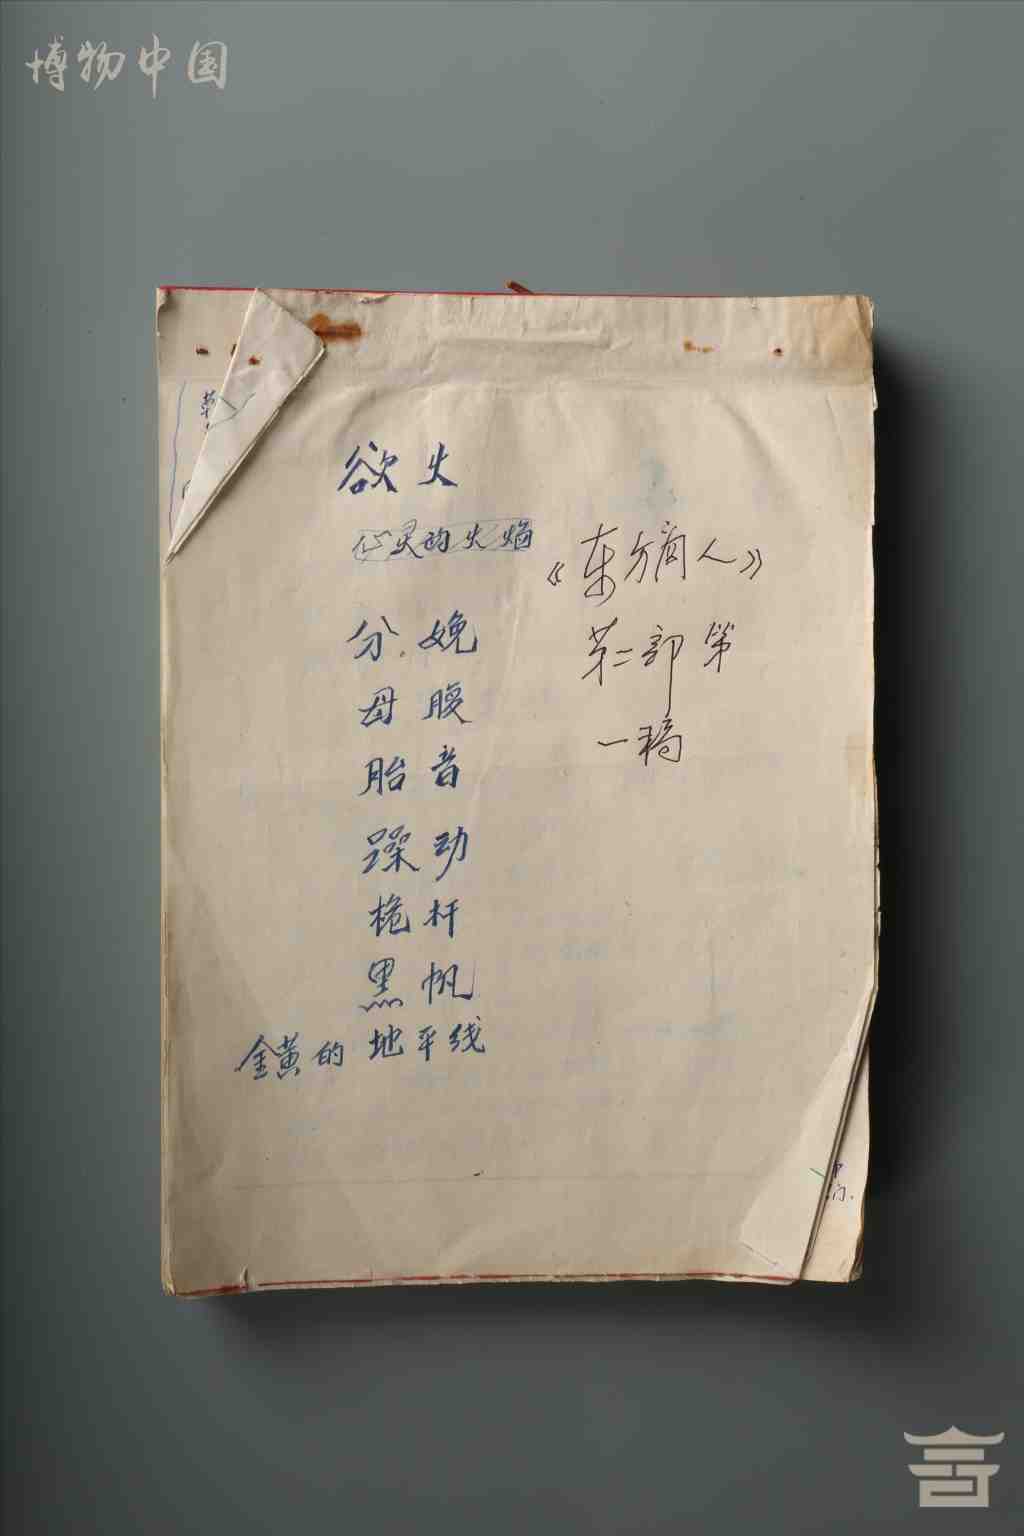 博物中国
欲火
心灵的火焰
《东方商人》
第二部第
一稿
分娩
母腹
胎音
躁动
桅杆
黑帆
金黄的地平线